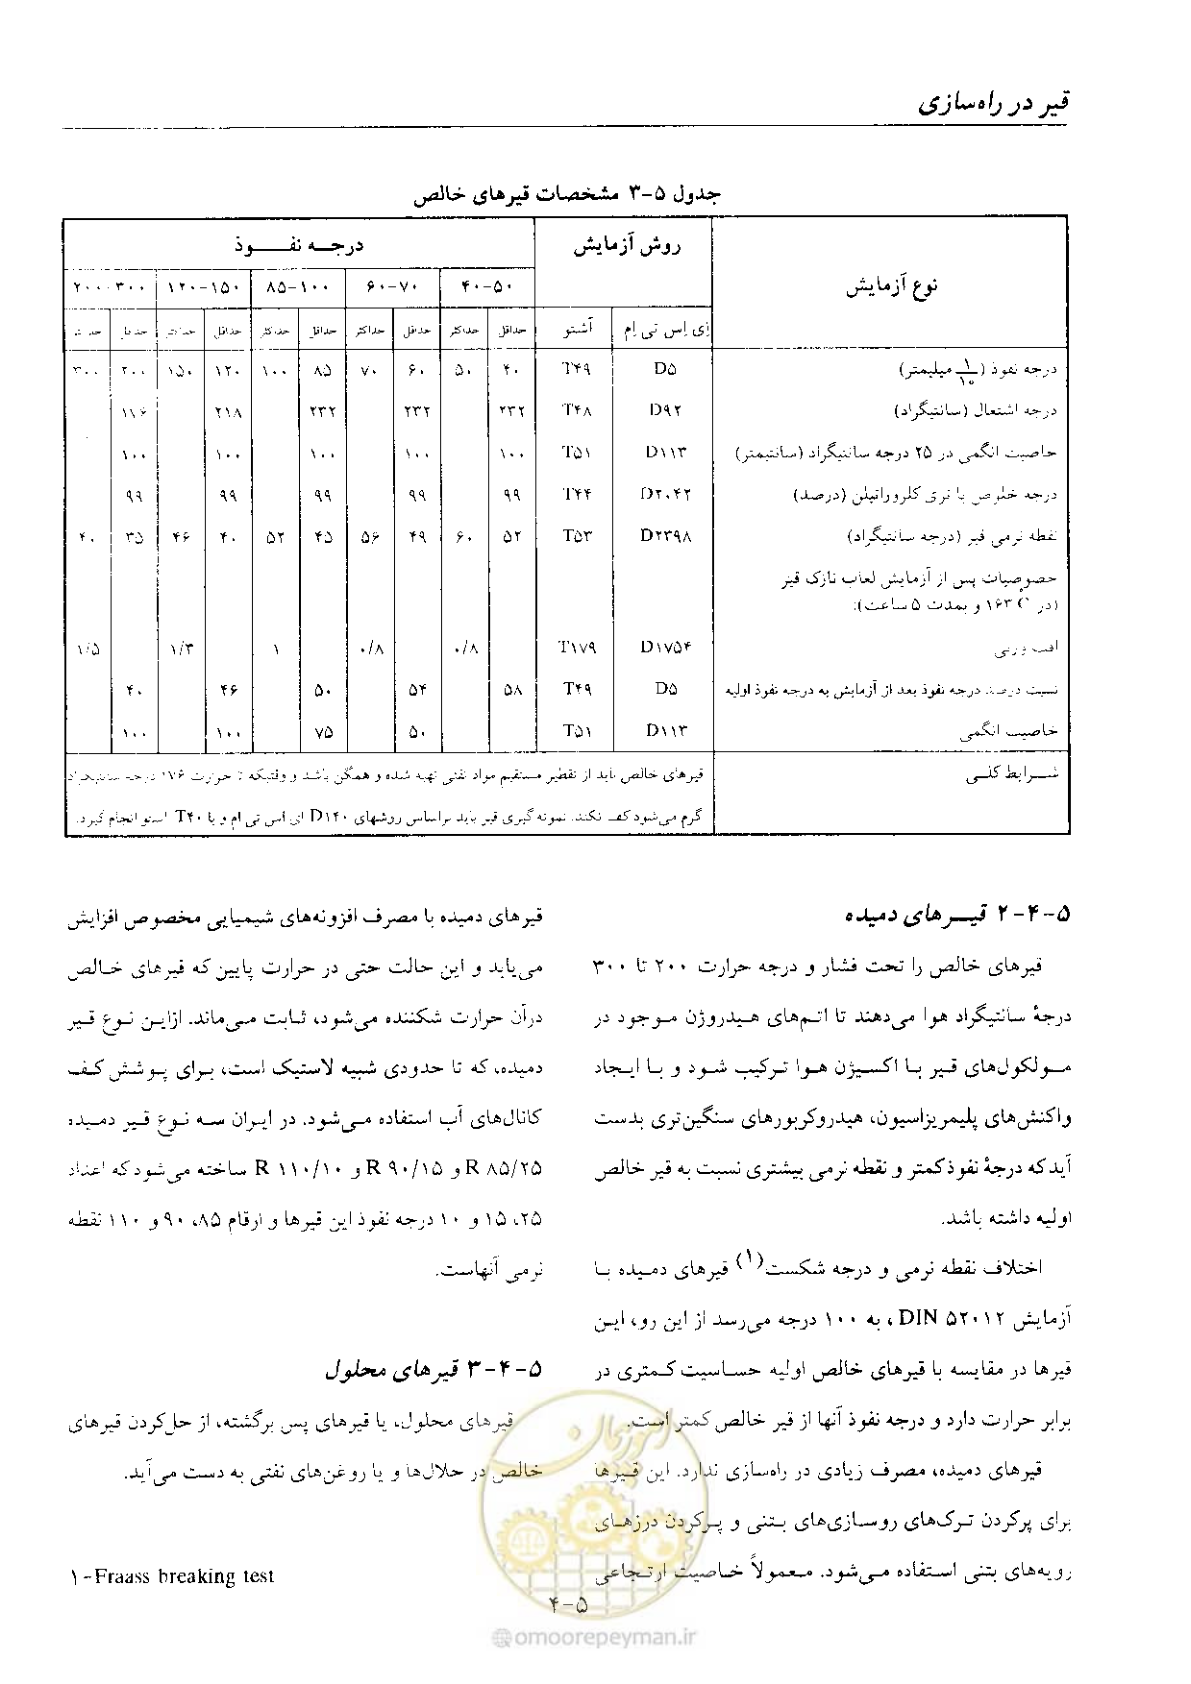 قیر در راه‌سازی
جدول ۵-۳ مشخصات قیرهای خالص
نوع آزمایش روش آزمایش درجــه نفــــوذ
۴۰-۵۰ ۶۰-۷۰ ۸۵-۱۰۰ ۱۲۰-۱۵۰ ۲۰۰-۳۰۰
اِی اِس تی اِم آشتو حداقل حداکثر حداقل حداکثر حداقل حداکثر حداقل
درجه نفوذ (۱/۱۰ میلیمتر) D۵ T۴۹ ۴۰ ۵۰ ۶۰ ۷۰ ۸۵ ۱۰۰ ۱۲۰ ۱۵۰ ۲۰۰ ۳۰۰
درجه اشتعال (سانتیگراد) D۹۲ T۴۸ ۲۳۲ ۲۳۲ ۲۳۲ ۲۱۸ ۱۱۶
خاصیت انگمی در ۲۵ درجه سانتیگراد (سانتیمتر) D۱۱۳ T۵۱ ۱۰۰ ۱۰۰ ۱۰۰ ۱۰۰ ۱۰۰
درجه خلوص با تری کلرواتیلن (درصد) D۲۰۴۲ T۴۴ ۹۹ ۹۹ ۹۹ ۹۹ ۹۹
نقطه نرمی قیر (درجه سانتیگراد) D۲۳۹۸ T۵۳ ۵۲ ۶۰ ۴۹ ۵۶ ۴۵ ۵۲ ۴۰ ۴۶ ۳۵ ۴۰
خصوصیات پس از آزمایش لعاب نازک قیر
(در ۱۶۳°C و بمدت ۵ ساعت):
افت وزنی D۱۷۵۴ T۱۷۹ ۰/۸ ۰/۸ ۱ ۱/۳ ۱/۵
نسبت درصد درجه نفوذ بعد از آزمایش به درجه نفوذ اولیه D۵ T۴۹ ۵۸ ۵۴ ۵۰ ۴۶ ۴۰
خاصیت انگمی D۱۱۳ T۵۱ ۵۰ ۷۵ ۱۰۰ ۱۰۰
شــرایط کلــی قیرهای خالص باید از تقطیر مستقیم مواد نفتی تهیه شده و همگن باشد و وقتیکه تا حرارت ۱۷۶ درجه سانتیگراد
گرم می‌شود کف نکند. نمونه گیری قیر باید براساس روشهای D۱۴۰ ای اس تی ام و یا T۴۰ استو انجام گیرد.
۵-۴-۲ قیــرهای دمیده
قیرهای خالص را تحت فشار و درجه حرارت ۲۰۰ تا ۳۰۰
درجۀ سانتیگراد هوا می‌دهند تا اتم‌های هیدروژن موجود در
مولکول‌های قیر با اکسیژن هوا ترکیب شود و با ایجاد
واکنش‌های پلیمریزاسیون، هیدروکربورهای سنگین‌تری بدست
آید که درجۀ نفوذ کمتر و نقطه نرمی بیشتری نسبت به قیر خالص
اولیه داشته باشد.
اختلاف نقطه نرمی و درجه شکست(۱) قیرهای دمیده با
آزمایش DIN ۵۲۰۱۲، به ۱۰۰ درجه می‌رسد از این رو، این
قیرها در مقایسه با قیرهای خالص اولیه حساسیت کمتری در
برابر حرارت دارد و درجه نفوذ آنها از قیر خالص کمتر است.
قیرهای دمیده، مصرف زیادی در راه‌سازی ندارد. این قیرها
برای پرکردن ترک‌های روسازی‌های بتنی و پرکردن درزهای
رویه‌های بتنی استفاده می‌شود. معمولاً خاصیت ارتجاعی
قیرهای دمیده با مصرف افزونه‌های شیمیایی مخصوص افزایش
می‌یابد و این حالت حتی در حرارت پایین که قیرهای خالص
درآن حرارت شکننده می‌شود، ثابت می‌ماند. ازاین نوع قیر
دمیده، که تا حدودی شبیه لاستیک است، برای پوشش کف
کانال‌های آب استفاده می‌شود. در ایران سه نوع قیر دمیده
R ۸۵/۲۵ و R ۹۰/۱۵ و R ۱۱۰/۱۰ ساخته می‌شود که اعداد
۲۵، ۱۵ و ۱۰ درجه نفوذ این قیرها و ارقام ۸۵، ۹۰ و ۱۱۰ نقطه
نرمی آنهاست.
۵-۴-۳ قیرهای محلول
قیرهای محلول، یا قیرهای پس برگشته، از حل‌کردن قیرهای
خالص در حلال‌ها و یا روغن‌های نفتی به دست می‌آید.
۱-Fraass breaking test
۴-۵
امور پیمان
@omoorepeyman.ir